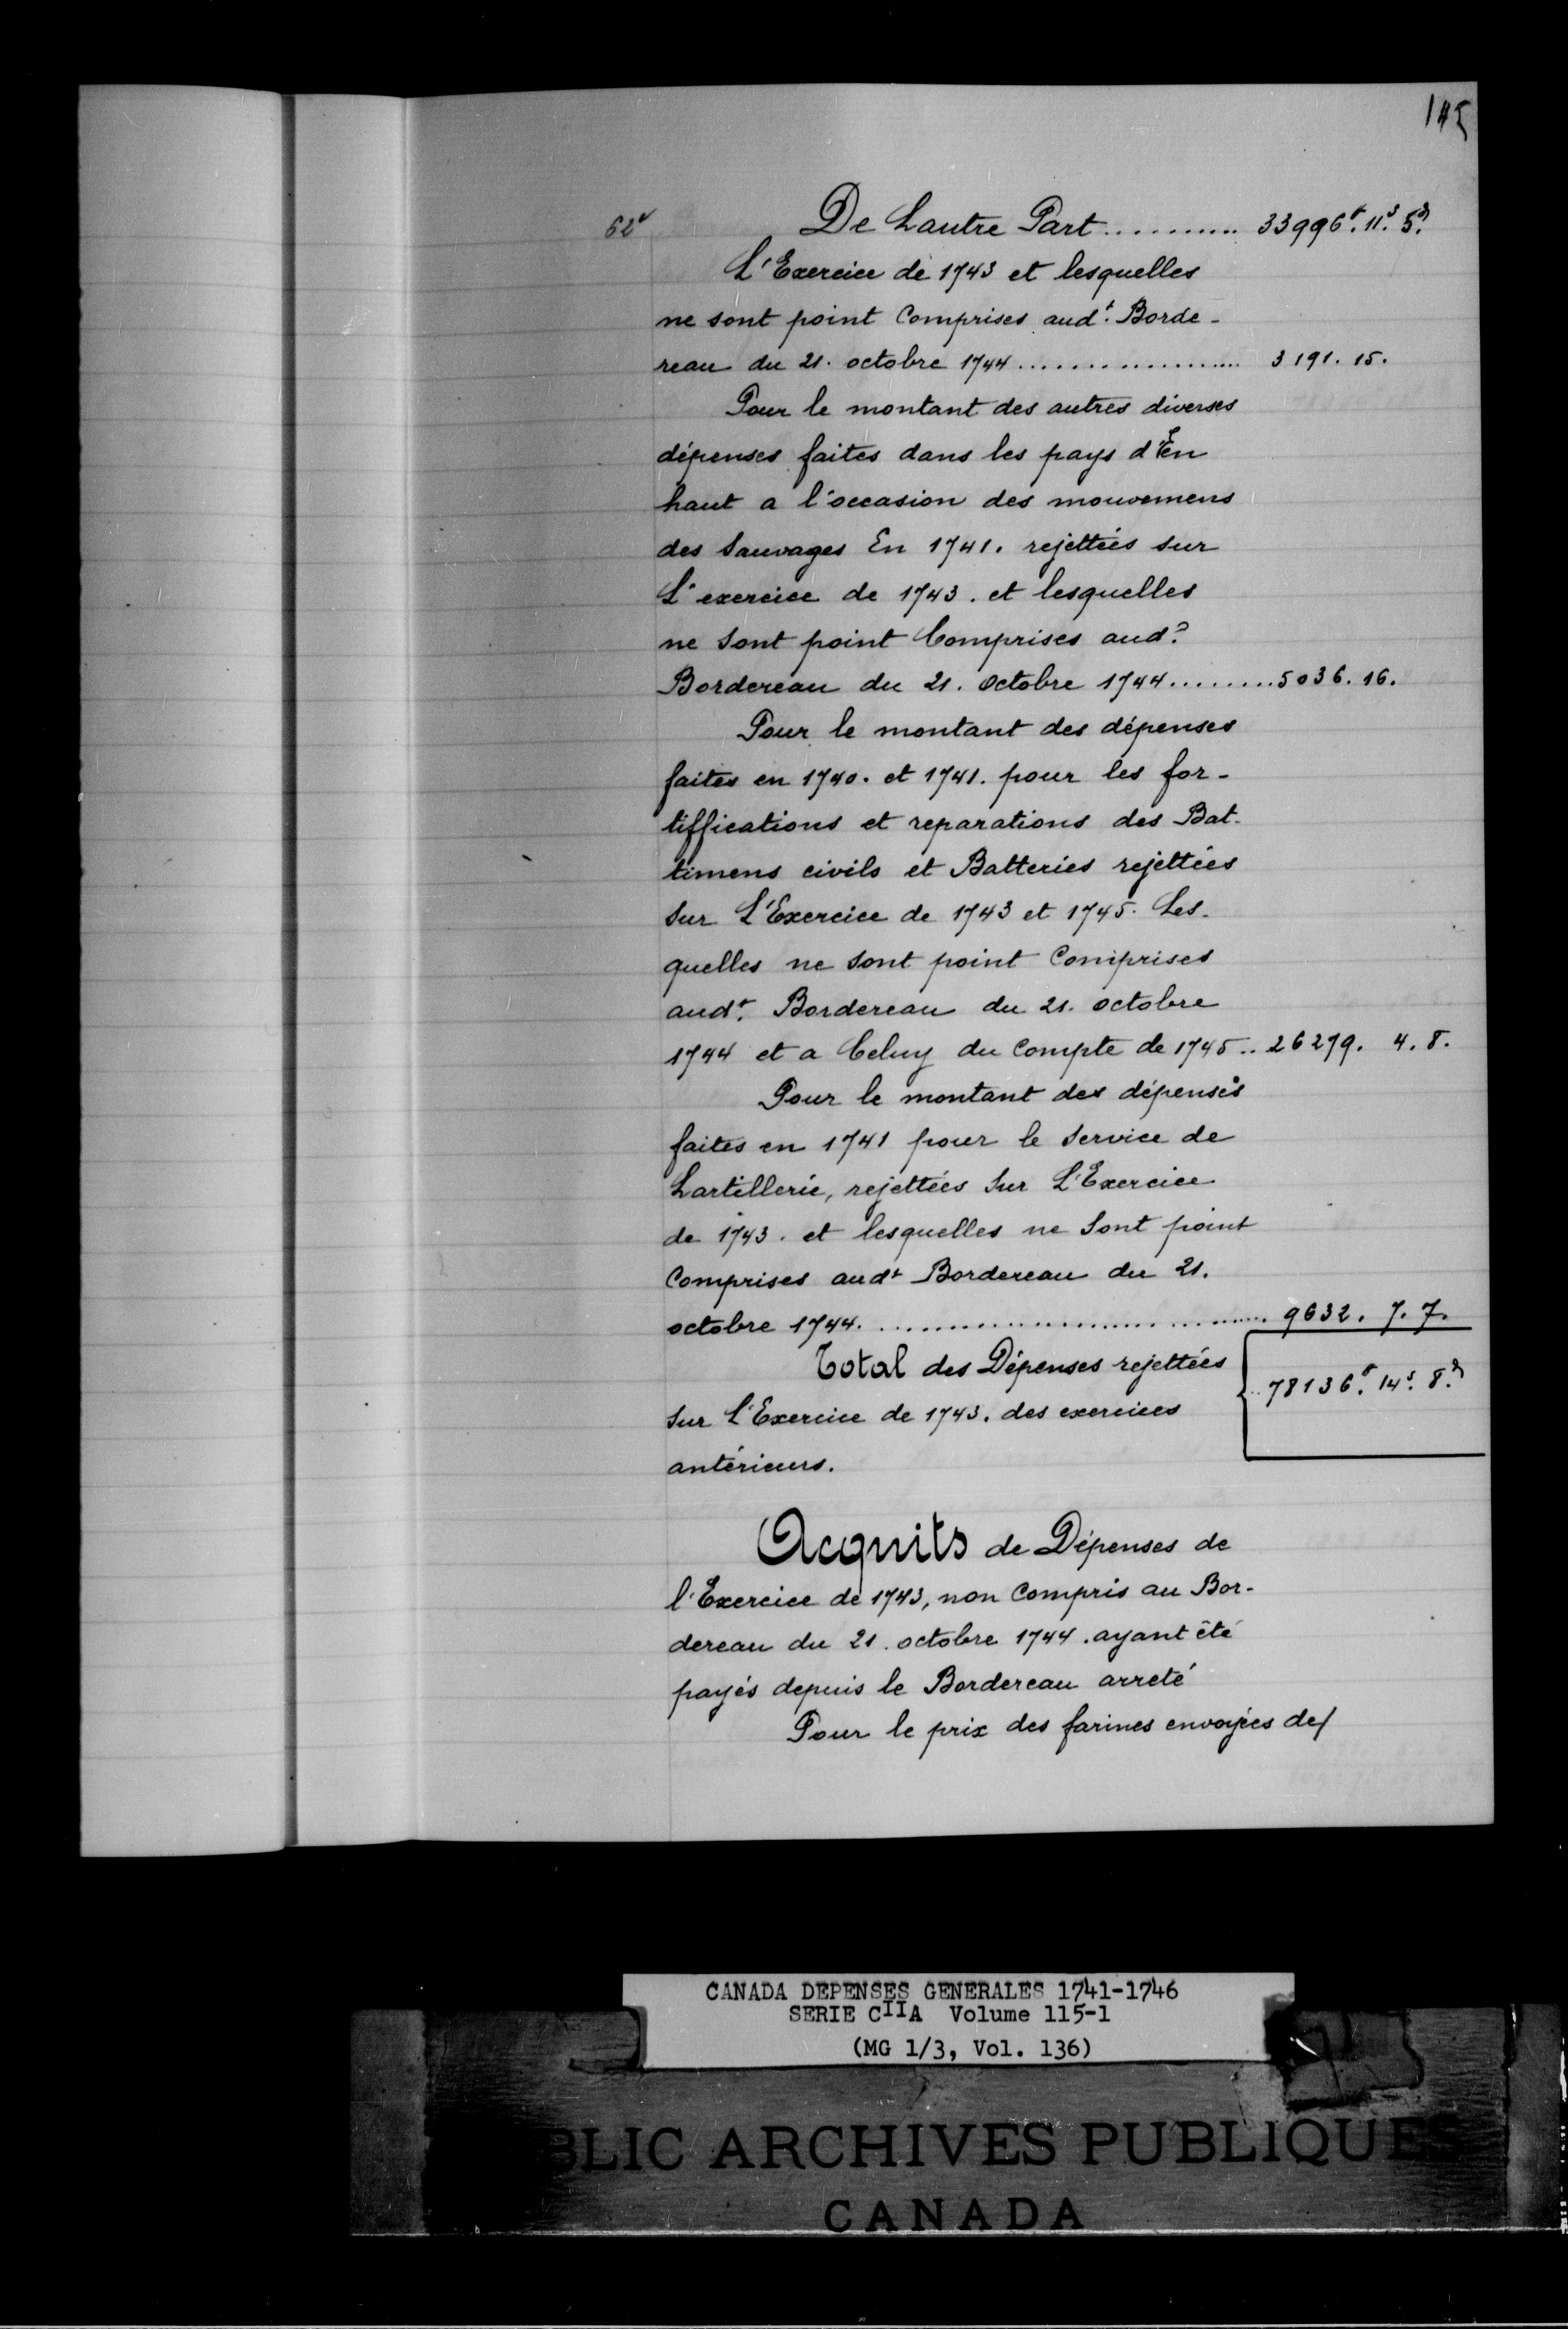 145
62v De Lautre Part........... 33996# 11s 5d
L'Exercice de 1743 et lesquelles
ne sont point Comprises audt. Borde-
reau du 21. octobre 1744................... 3191. 15.
Pour le montant des autres diverses
dépenses faites dans les pays d'En
haut a l'occasion des mouvemens
des Sauvages En 1741. rejettées sur
L'exercice de 1743. et lesquelles
ne Sont point Comprises audt.
Bordereau du 21. Octobre 1744.........5036. 16.
Pour le montant des dépenses
faites en 1740. et 1741. pour les for-
tiffications et reparations des Bat-
timens civils et Batteries rejettées
Sur L'Exercice de 1743 et 1745. Les-
quelles ne Sont point Comprises
audt. Bordereau du 21. octobre
1744 et a Celuy du Compte de 1745.. 26279. 4. 8.
Pour le montant des dépenses
faites en 1741 pour le Service de
Lartillerie, rejettées Sur L'Exercice
de 1743. et lesquelles ne Sont point
Comprises audt Bordereau du 21.
octobre 1744............................... 9632. 7. 7.
Total des Dépenses rejettées
78136# 14s 8d
Sur L'Exercice de 1743. des exercices
antérieurs.
Acquits de Dépenses de
l'Exercice de 1743, non Compris au Bor-
dereau du 21. octobre 1744. ayant été
payés depuis le Bordereau arreté
Pour le prix des farines envoyées de/
CANADA DEPENSES GENERALES 1741-1746
SERIE CIIA Volume 115-1
(MG 1/3, Vol. 136)
BLIC ARCHIVES PUBLIQUES
CANADA